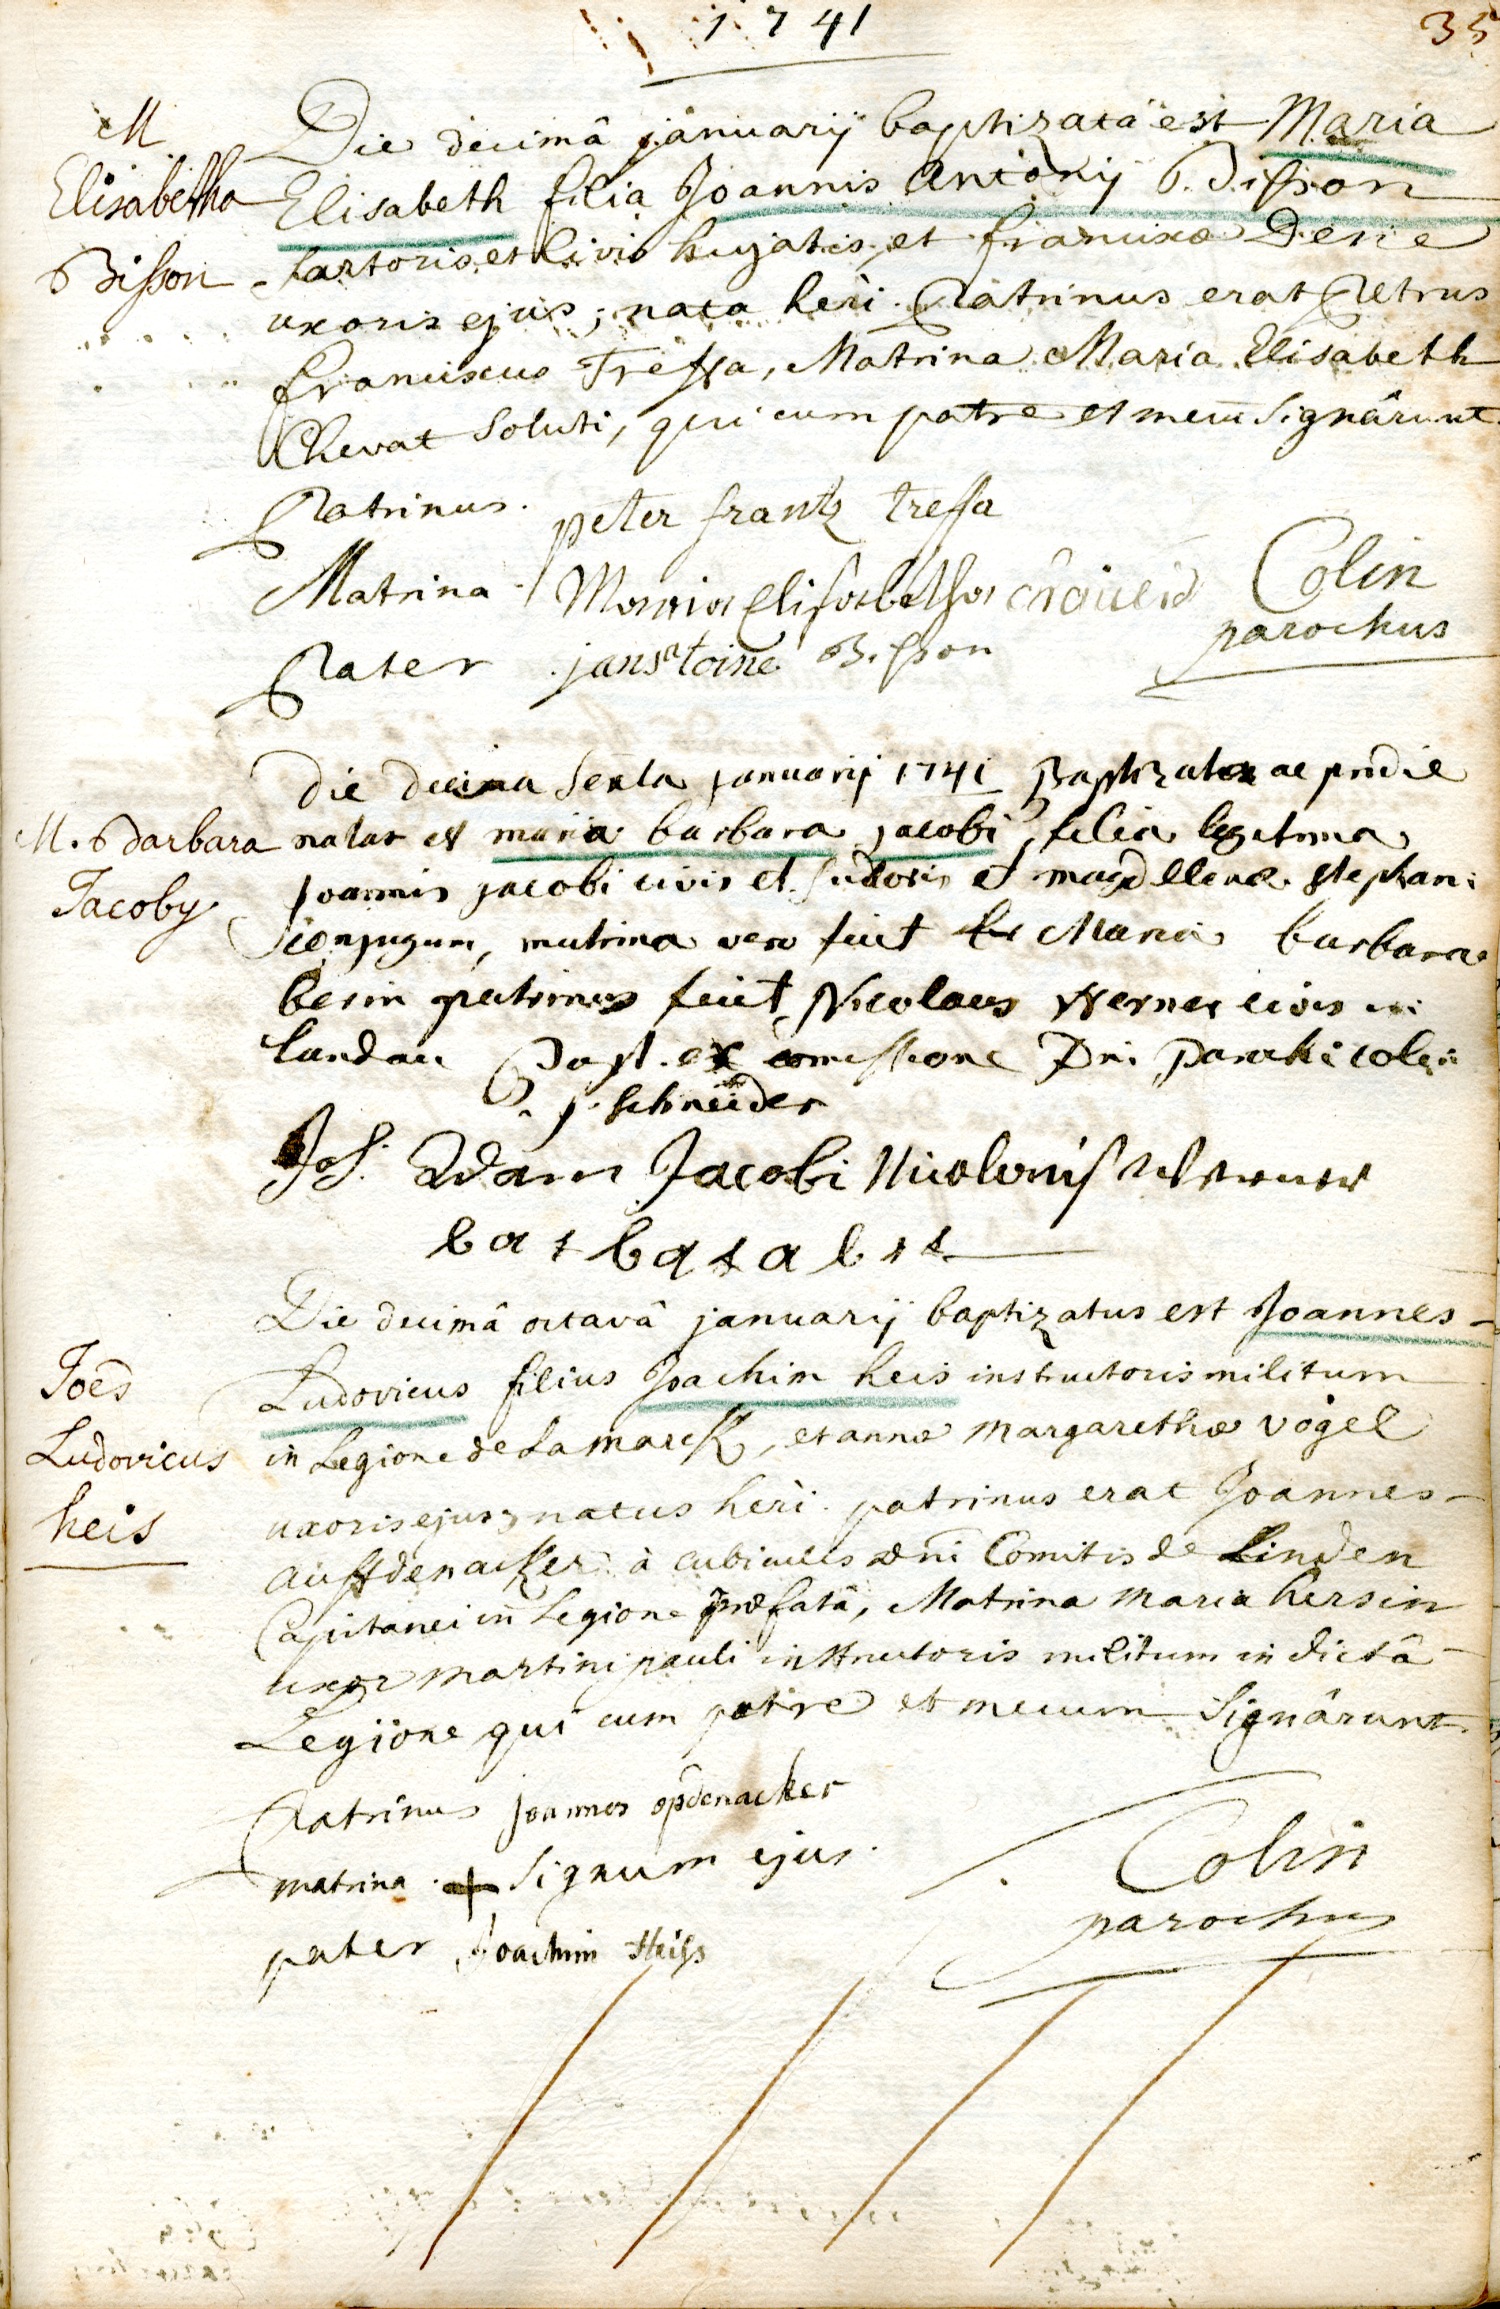 1741
35
M
Elisabetha
Bisson
Die decimâ januarij baptizata est Maria
Elisabeth filia Joannis Antonij Bisson
sartoris et Civis hujatis, et franciscæ Derie
uxoris ejus; nata heri. Patrinus erat Petrus
franciscus Treffa, Matrina Maria Elisabeth
Chevat soluti, qui cum patre et mecū Signârunt.
Patrinus. peter frantz treffa
Matrina Maria Elisabetha
Colin
parochus
Pater janstoine Bisson
M. Barbara
Jacoby
Die decima sexta januarij 1741 Baptizata ac pridie
nata est maria barbara jacobi, filia legitima
joannis jacobi civis et sutoris et magdalenæ stephani
conjugum, matrina vero fuit Maria barbara
besin patrinus fuit Nicolaus Werner civis in
landau Bapt. ex comissione Dni Parochi colin
P. J. Schneider
Joh. Adam Jacobi Nicolaus Werner
Joēs
Ludovicus
heis
Die decimâ octavâ januarij baptizatus est Joannes-
Ludovicus filius Joachim heis instructoris militum
in Legione de La marck, et annæ Margarethæ Vogel
uxoris ejus; natus heri. patrinus erat Joannes-
auffdenacker à cubiculis Dni Comitis de Linden
Capitanei in Legione præfatâ, Matrina Maria hersin
uxor Martini pauli instructoris militum in dictâ
Legione qui cum patre et mecum Signârunt.
Patrinus joannes opdenacker
matrina + Signum ejus.
pater Joachim Heiss
Colin
parochus